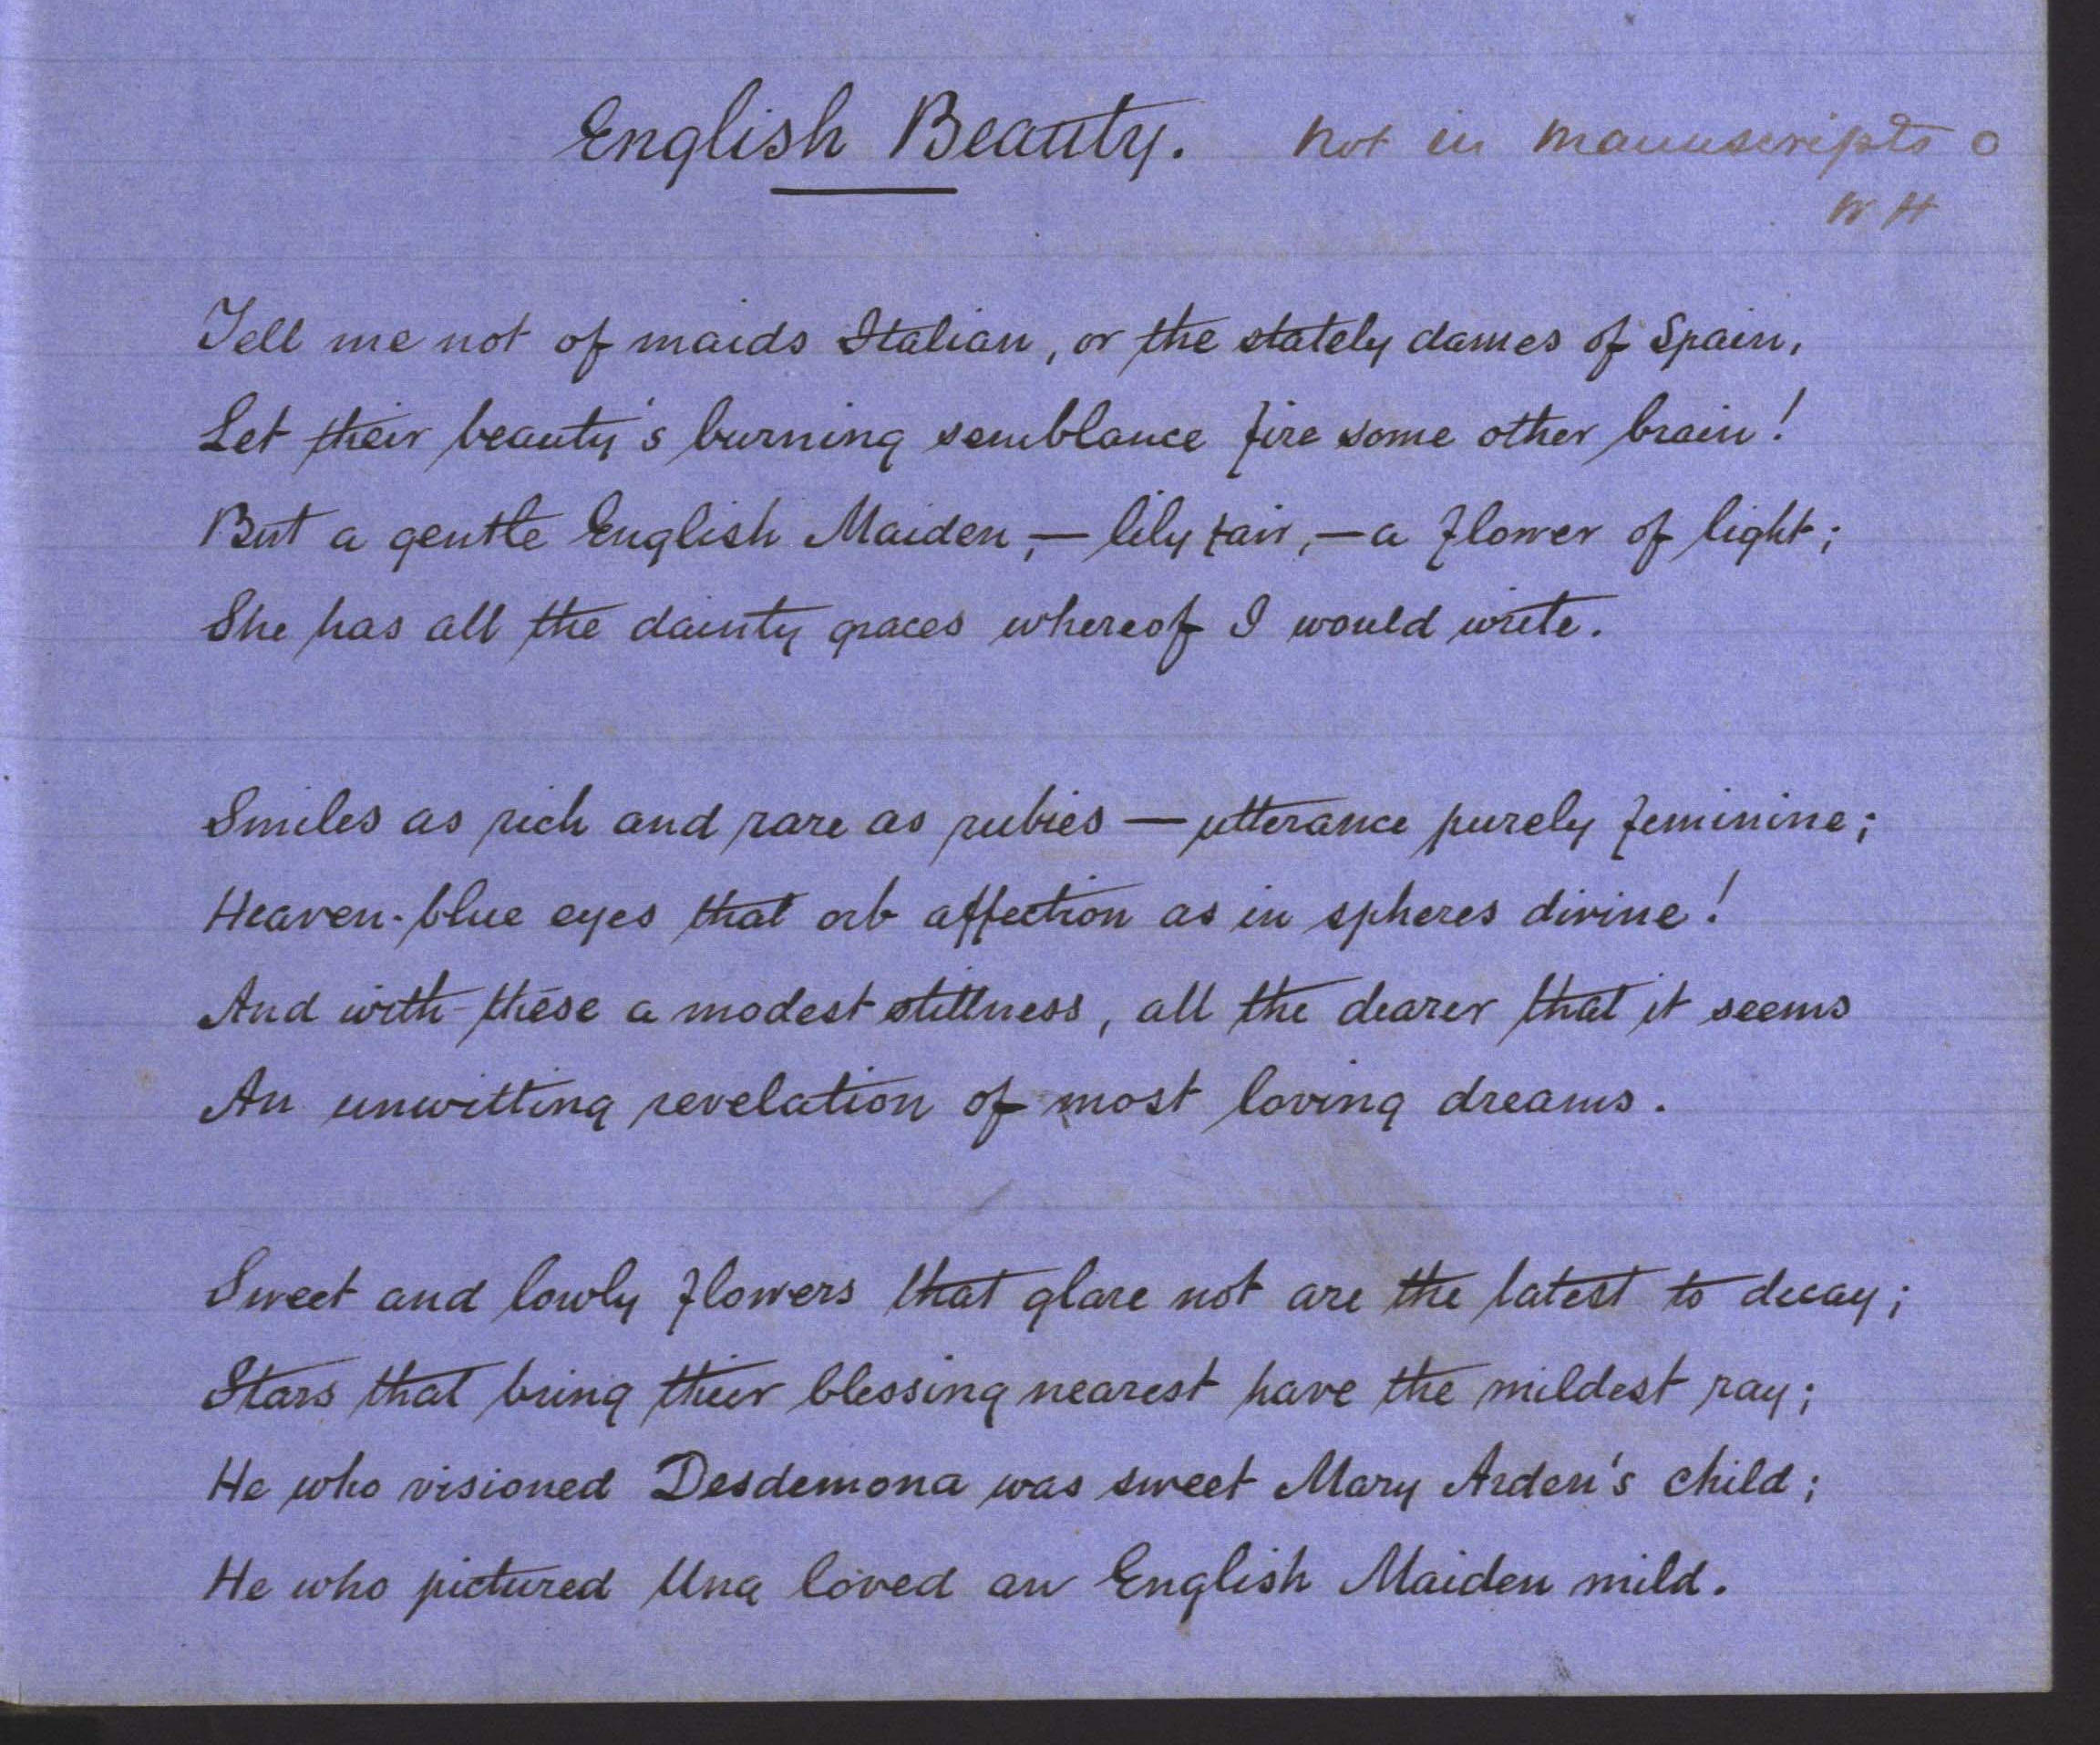 English Beauty. Not in manuscripts o
W H
Tell me not of maids Italian, or the stately dames of Spain,
Let their beauty's burning semblance fire some other brain!
But a gentle English Maiden,— lily fair,— a flower of light;
She has all the dainty graces whereof I would write.
Smiles as rich and rare as rubies — utterance purely feminine;
Heaven-blue eyes that orb affection as in spheres divine!
And with these a modest stillness, all the dearer that it seems
An unwitting revelation of most loving dreams.
Sweet and lowly flowers that glare not are the latest to decay;
Stars that bring their blessing nearest have the mildest ray;
He who visioned Desdemona was sweet Mary Arden's child;
He who pictured Una loved an English Maiden mild.